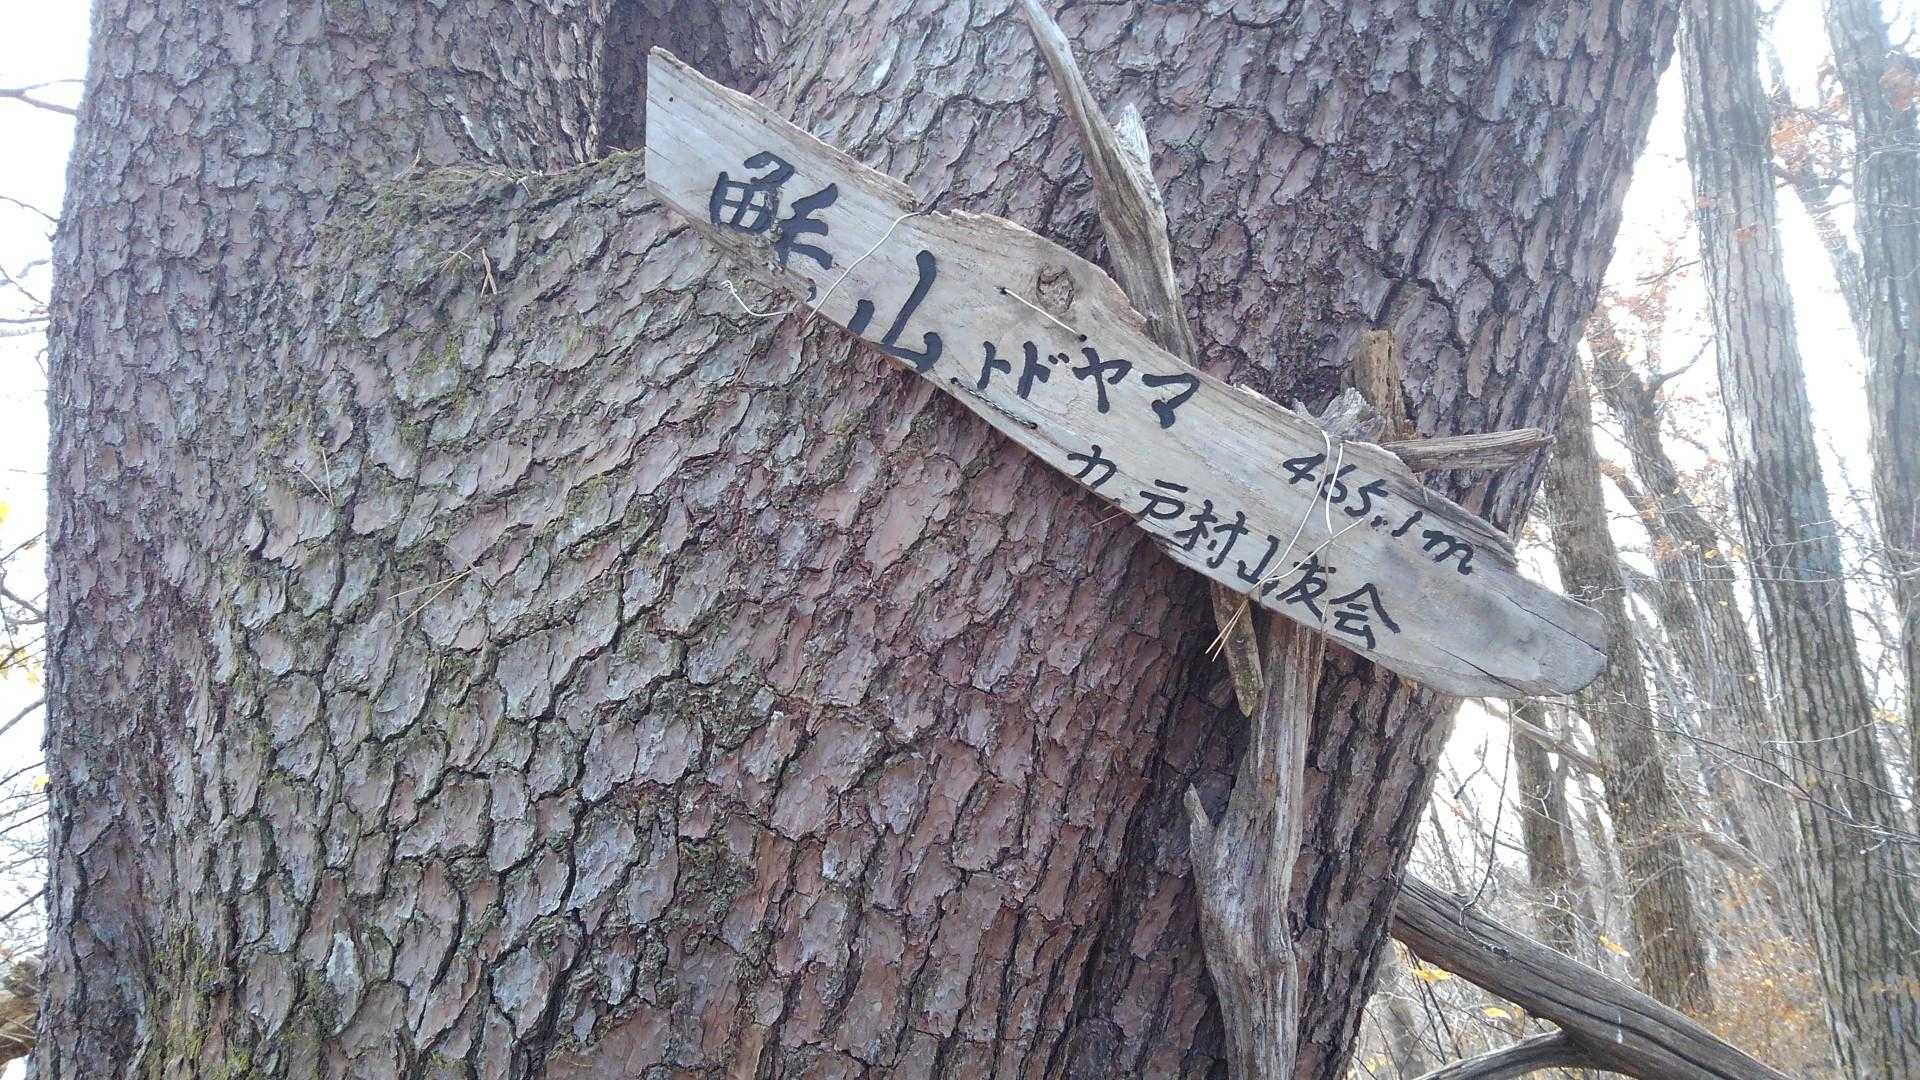 魹山 トドヤマ
465.1m
九戸村山友会